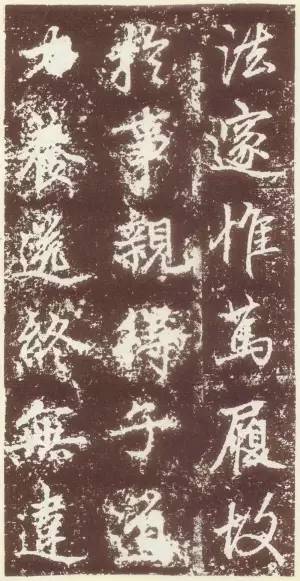 法邃惟萬履故
於事親得子道
力養送終無違